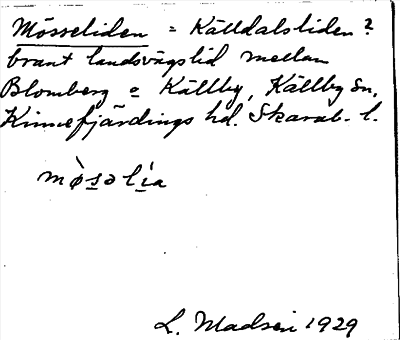 Mösseliden = Källdalsliden?
brant landsvägslid mellan
Blomberg o Källby, Källby sn,
Kinnefjärdings hd. Skarab. l.
mø̀səlía
L. Madsén 1929